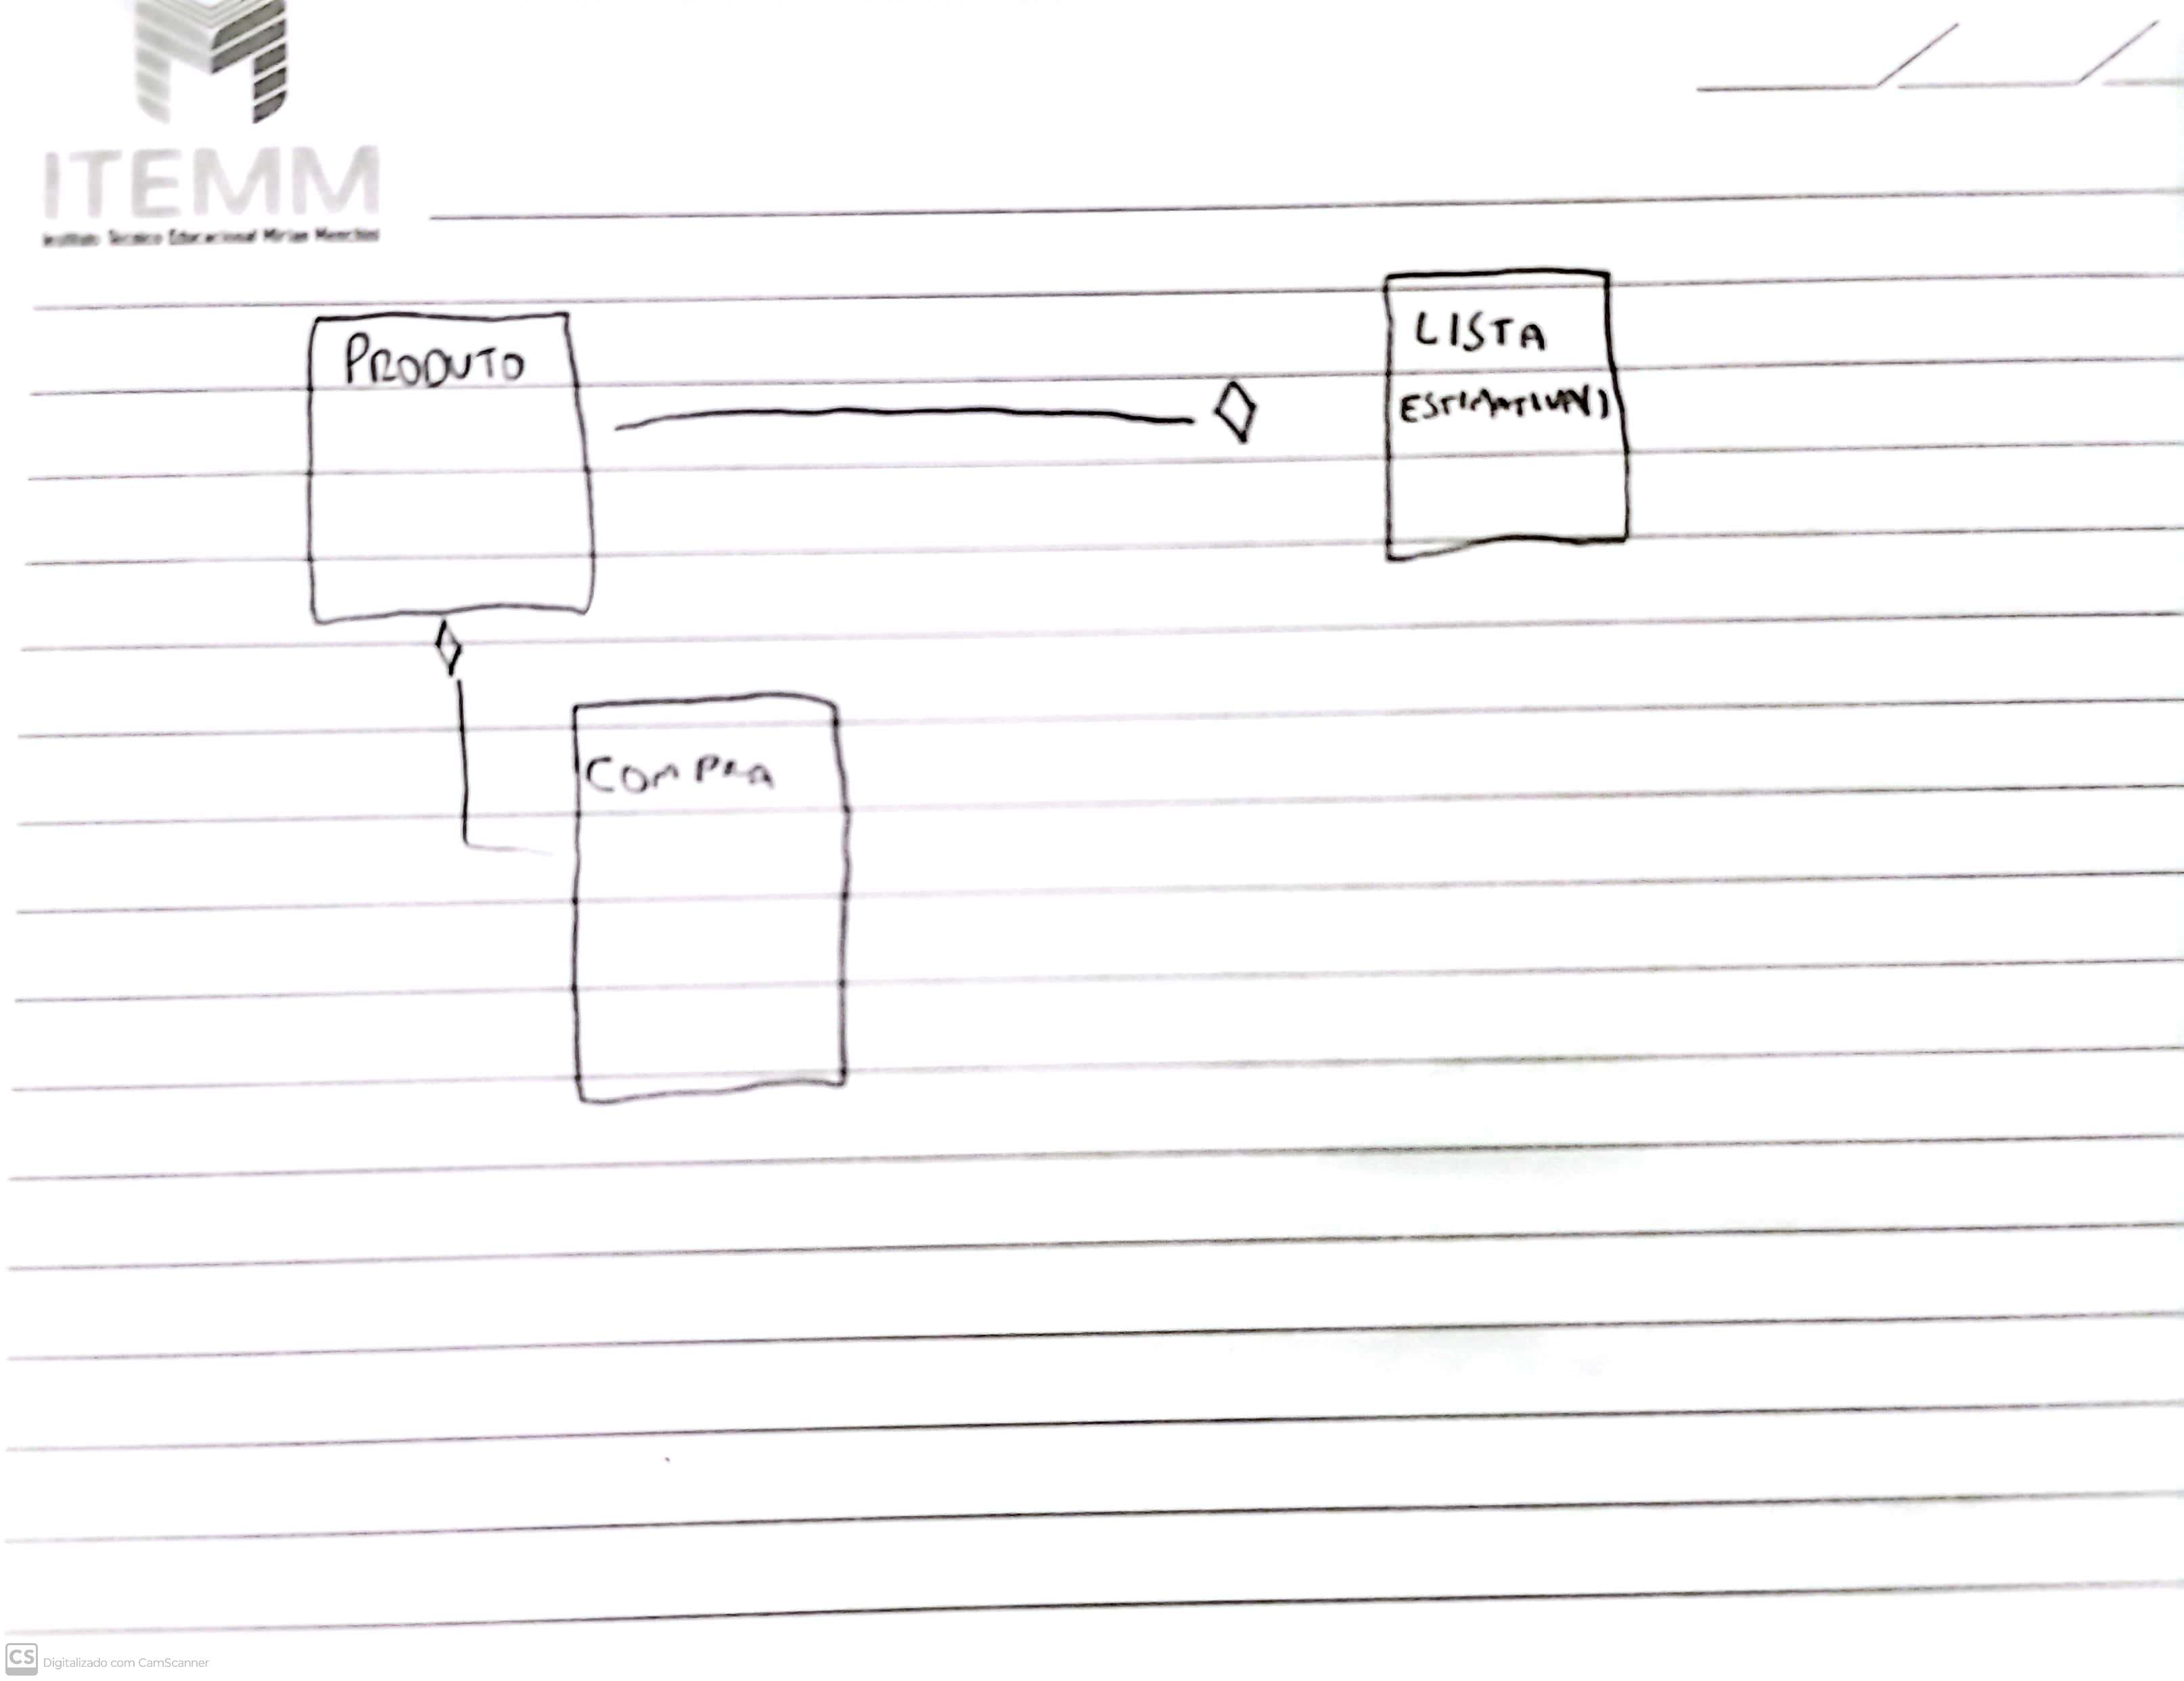 ITEMM
Instituto Técnico Educacional Mirian Menchini
PRODUTO
LISTA
COMPRA
CS Digitalizado com CamScanner